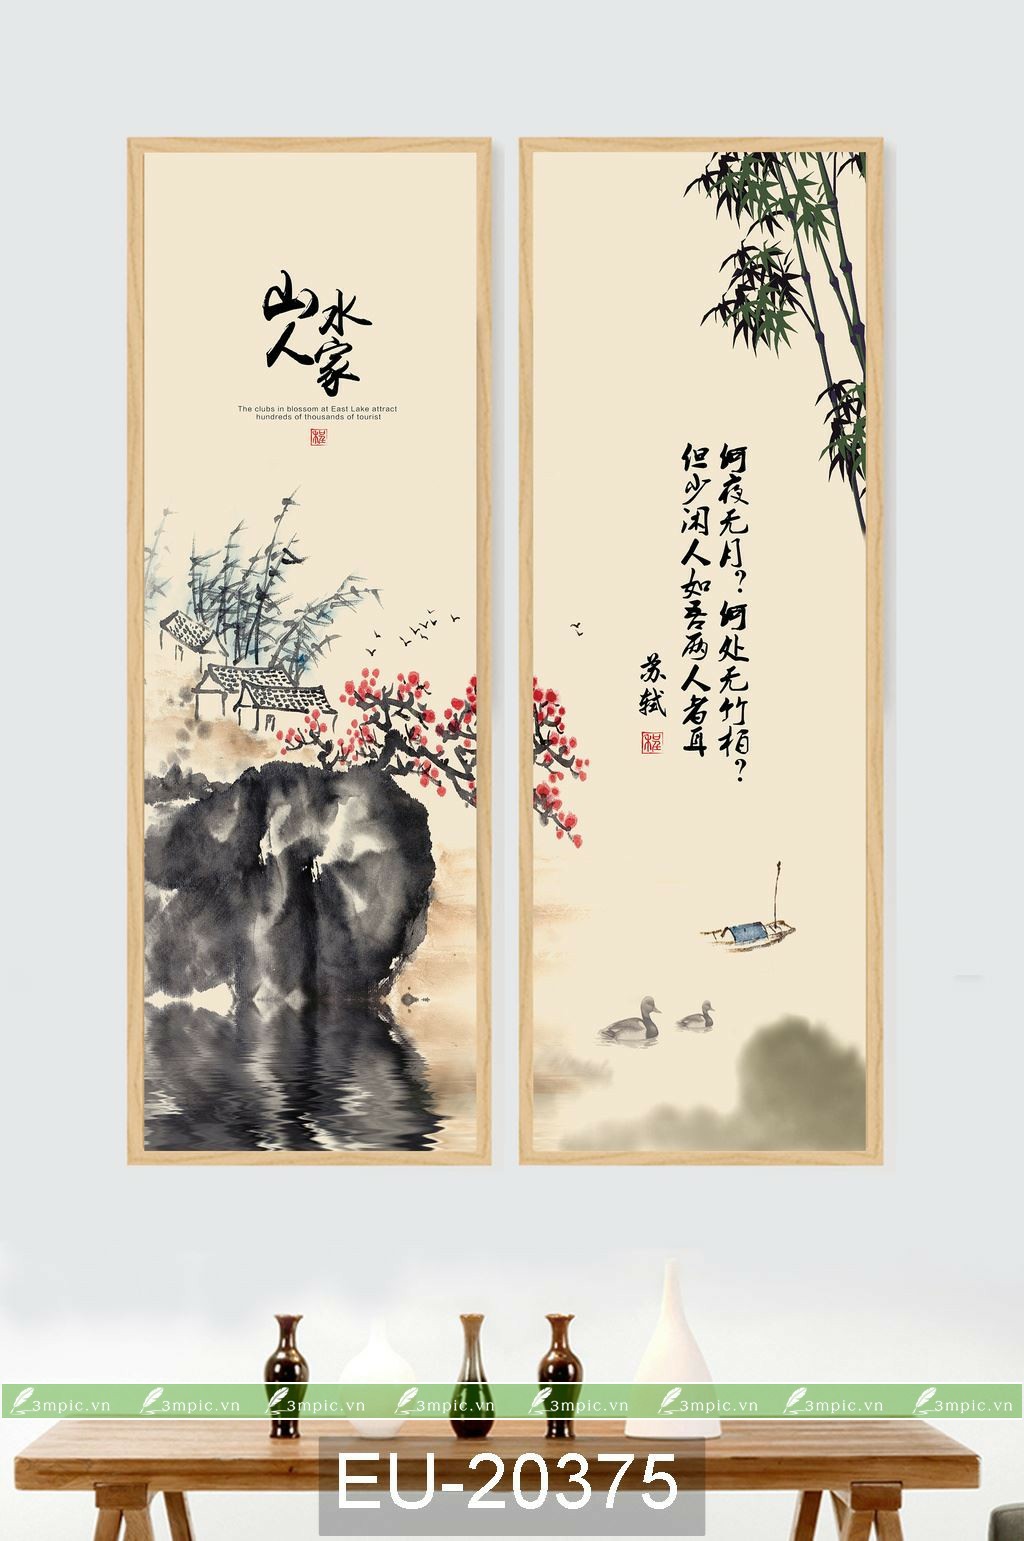 山水
人家
The clubs in blossom at East Lake attract
hundreds of thousands of tourist
何夜无月？何处无竹柏？
但少闲人如吾两人者耳
苏轼
3mpic.vn 3mpic.vn 3mpic.vn 3mpic.vn 3mpic.vn 3mpic.vn 3mpic.vn 3mpic.vn
EU-20375